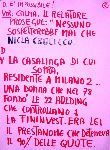 D. E' IMPOSSIBILE!
VOX: CALMA. IL RELATORE
PROSEGUE: "NESSUNO
SOSPETTEREBBE MAI CHE
NICLA CROCITTO
D
Y LA CASALINGA DI CUI
SOPRA,
RESIDENTE A MILANO 2 -
UNA DONNA CHE NEL 78
FONDÒ LE 22 HOLDING
CHE CONTROLLANO
LA FININVEST. ERA LEI
IL PRESTANOME CHE DETENEVA
IL 90% DELLE QUOTE.